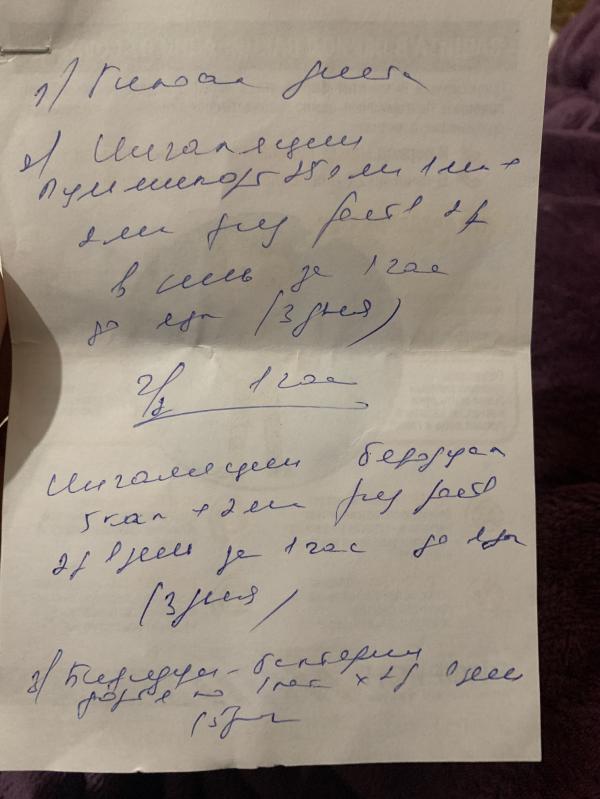 1/ Гипоал диета
2/ Ингаляции
Пульмикорт 250 мг 1 мл +
2 мл физ раст 2 р
в день за 1 час
до еды (3 дня)
ч/з 1 час
Ингаляции беродуал
5 кап + 2 мл физ раст
2 р в день за 1 час до еды
(3 дня)
3/ бактерии
по 1 × 2 р в день